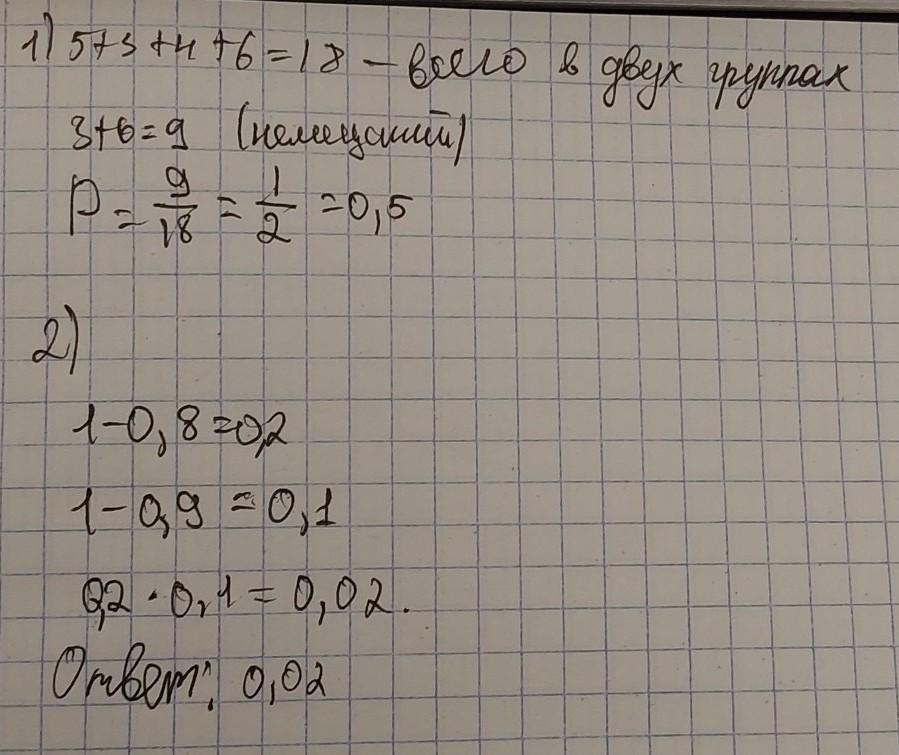 1) 5+3+4+6=18 – всего в двух группах
3+6=9 (немецкий)
P = 9/18 = 1/2 = 0,5
2)
1-0,8=0,2
1-0,9=0,1
0,2·0,1=0,02.
Ответ: 0,02